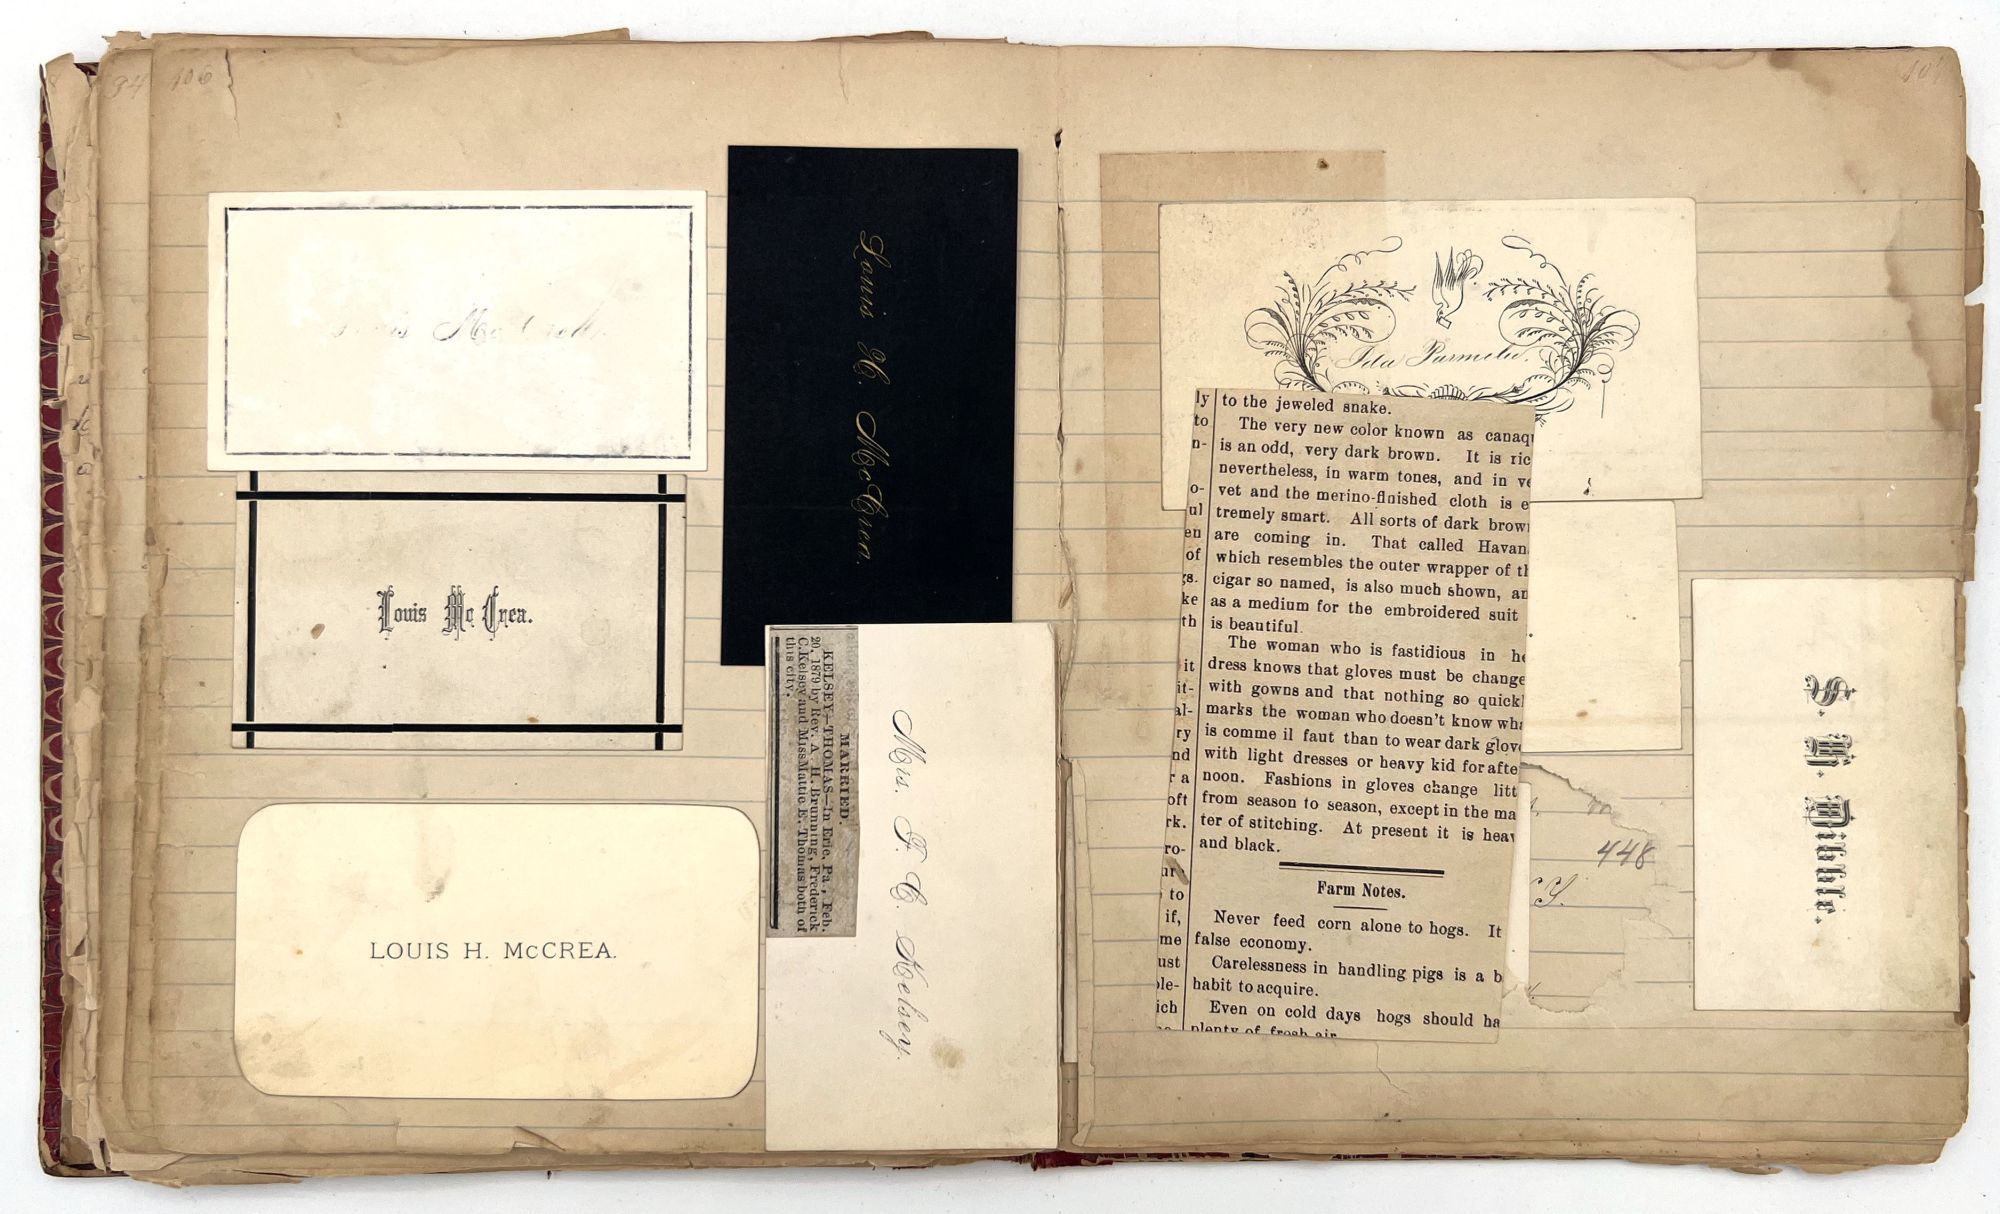 34
106
Louis Mc Crea.
LOUIS H. McCREA.
Louis H. McCrea.
MARRIED.
KELSEY—THOMAS—In Erie, Pa., Feb.
20, 1879 by Rev. A. H. Brunning, Frederick
C. Kelsey and Miss Mattie E. Thomas both of
this city.
Mrs. F. C. Kelsey.
Ida Parmelee.
ly
to
n-
o-
ul
en
of
gs.
ke
th
it
it-
al-
ry
nd
r a
oft
rk.
ro-
ur-
to
if,
me
ust
ple-
ich
to the jeweled snake.
The very new color known as canaqu
is an odd, very dark brown. It is ric
nevertheless, in warm tones, and in ve
vet and the merino-finished cloth is e
tremely smart. All sorts of dark brow
are coming in. That called Havan
which resembles the outer wrapper of th
cigar so named, is also much shown, an
as a medium for the embroidered suit
is beautiful.
The woman who is fastidious in he
dress knows that gloves must be change
with gowns and that nothing so quickl
marks the woman who doesn't know wha
is comme il faut than to wear dark glov
with light dresses or heavy kid for afte
noon. Fashions in gloves change litt
from season to season, except in the ma
ter of stitching. At present it is heav
and black.
Farm Notes.
Never feed corn alone to hogs. It
false economy.
Carelessness in handling pigs is a b
habit to acquire.
Even on cold days hogs should ha
plenty of fresh air
448
S. H. Dibble.